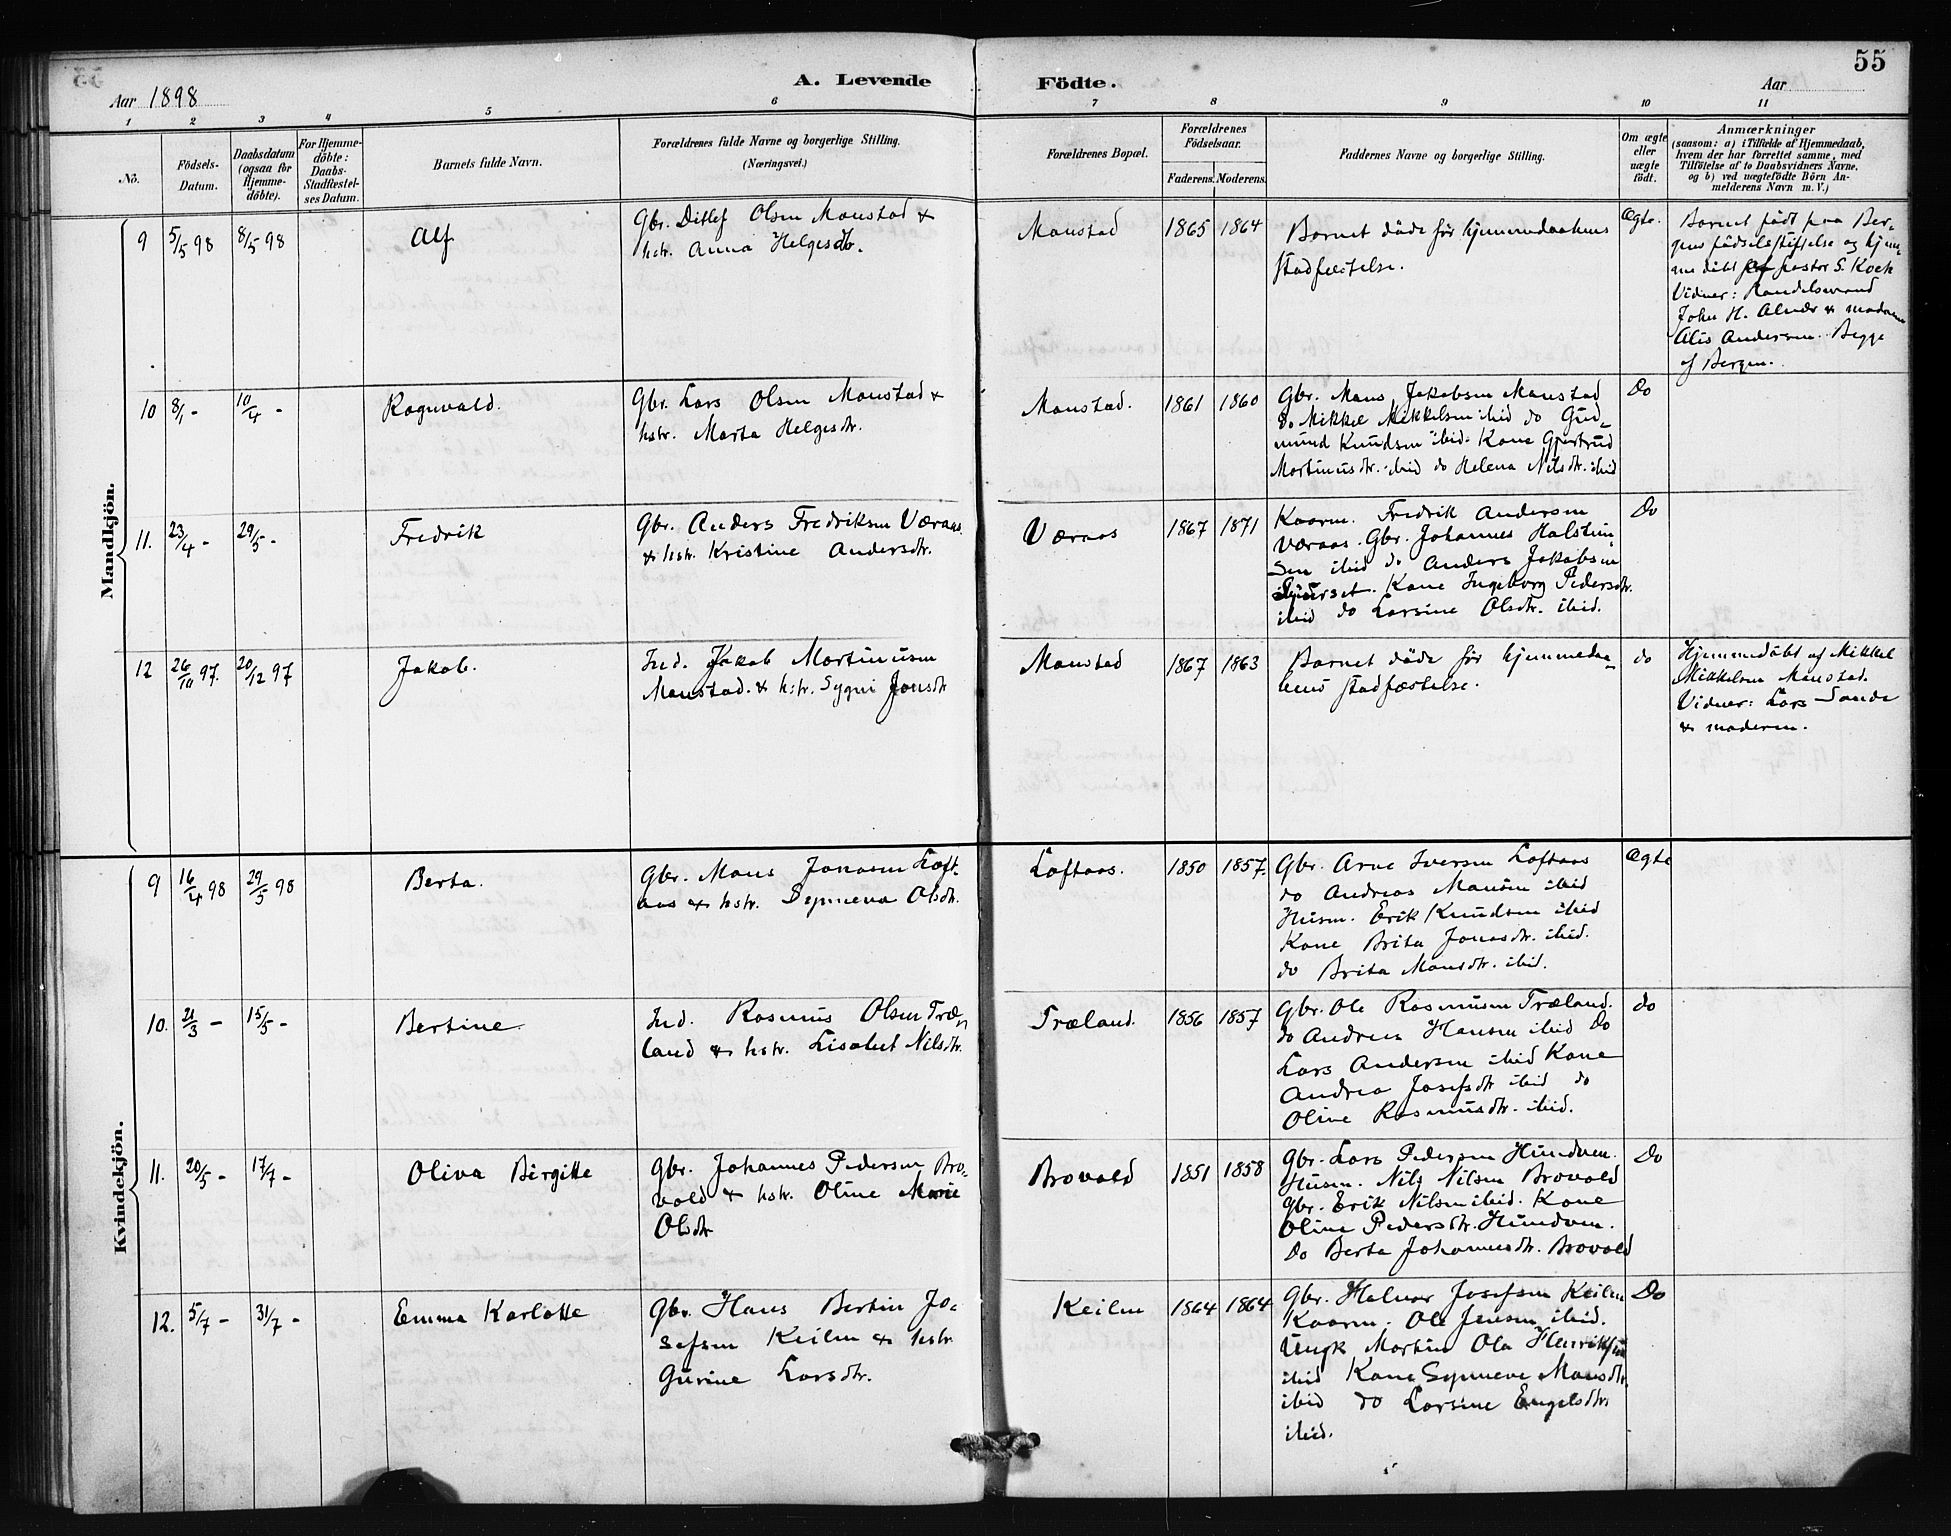 55
A. Levende Födte.
Aar 1898
Aar
1 2 3 4 5 6 7 8 9 10 11
No.
Födsels-
Datum.
Daabsdatum
(ogsaa for
Hjemme-
döbte).
For Hjemme-
döbte:
Daabs-
Stadfæstel-
ses Datum.
Barnets fulde Navn.
Forældrenes fulde Navne og borgerlige Stilling.
(Næringsvei.)
Forældrenes Bopæl.
Forældrenes
Födselsaar.
Faderens. Moderens.
Faddernes Navne og borgerlige Stilling.
Om ægte
eller
uægte
födt.
Anmærkninger
(saasom: a) i Tilfælde af Hjemmedaab,
hvem der har forrettet samme, med
Tilföielse af to Daabsvidners Navne,
og b) ved uægtefödte Börn An-
melderens Navn m. V.)
Mandkjön.
9 5/5 98 8/5 98
Alf
Gbr. Ditlef Olsen Monstad &
hstr. Anna Helgesdtr.
Monstad 1865 1864
Barnet döde för hjemmedaabens
stadfæstelse.
Ægte.
Barnet födt paa Ber-
gens födselsstiftelse og hjem-
me döbt af pastor S. Koch
Vidner: Handelsmand
John H. Alvær & madame
Alis Andersen. Begge
af Bergen.
10 8/1 - 10/4 -
Ragnvald.
Gbr. Lars Olsen Monstad &
hstr. Marta Helgesdtr.
Monstad. 1861 1860
Gbr. Mons Jakobsen Monstad
do Mikkel Mikkelsen ibid do Gud-
mund Knudsen ibid. Kone Gjertrud
Martinusdtr. ibid do Helena Nilsdtr. ibid
Do
11. 23/4 - 29/5 -
Fredrik
Gbr. Anders Fredriksen Væraas
& hstr. Kristine Andersdtr.
Væraas 1867 1871
Kaarm. Fredrik Andersen
Væraas. Gbr. Johannes Halstein-
sen ibid do Anders Jakobsen
Kone Ingeborg Pedersdtr.
ibid do Larsine Olsdtr. ibid.
Do
12 26/10 97. 20/12 97
Jakob.
Ind. Jakob Martinusen
Monstad. & hstr. Sygni Jonsdtr
Monstad 1867 1863
Barnet döde för hjemmedaa-
bens stadfæstelse.
do
Hjemmedöbt af Mikkel
Mikkelsen Monstad.
Vidner: Lars Sande
& moderen.
Kvindekjön.
9 16/4 98 29/5 98
Berta.
Gbr. Mons Jonasen Loft-
aas & hstr. Synneva Olsdtr.
Loftaas. 1850 1857.
Gbr. Arne Iversen Loftaas
do Andreas Monsen ibid
Husm. Erik Knudsen ibid
Kone Brita Jonasdtr. ibid.
do Brita Monsdtr. ibid.
Ægte
10. 21/3 - 15/5 -
Bertine.
Ind. Rasmus Olsen Træ-
land & hstr. Lisabet Nilsdtr.
Træland. 1856 1857
Gbr. Ole Rasmusen Træland.
do Andreas Hansen ibid Do
Lars Andersen ibid Kone
Andrea Josefsdtr ibid do
Oline Rasmusdtr. ibid.
do
11. 20/5 - 17/7 -
Oliva Birgitte
Gbr. Johannes Pedersen Bro-
vold & hstr. Oline Marie
Olsdtr
Brovold 1851 1858
Gbr. Lars Pedersen Hundven.
Husm. Nils Nilsen Brovold
Gbr. Erik Nilsen ibid. Kone
Oline Pedersdtr. Hundven.
Do Berta Johannesdtr. Brovold
Do
12. 5/7 - 31/7 -
Emma Karlotte
Gbr. Hans Bertin Jo-
sefsen Keilen & hstr
Gurine Larsdtr.
Keilen 1864 1864
Gbr. Helmer Josefsen Keilen
Kaarm. Ole Jensen ibid.
Ungk Martin Ola Henriksen
ibid Kone Synneve Monsdtr.
ibid do Larsine Engelsdtr.
ibid.
Do